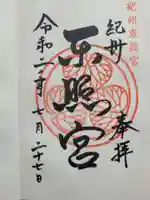 紀州東照宮
奉拝
紀州
东照宮
令和二年七月二十七日